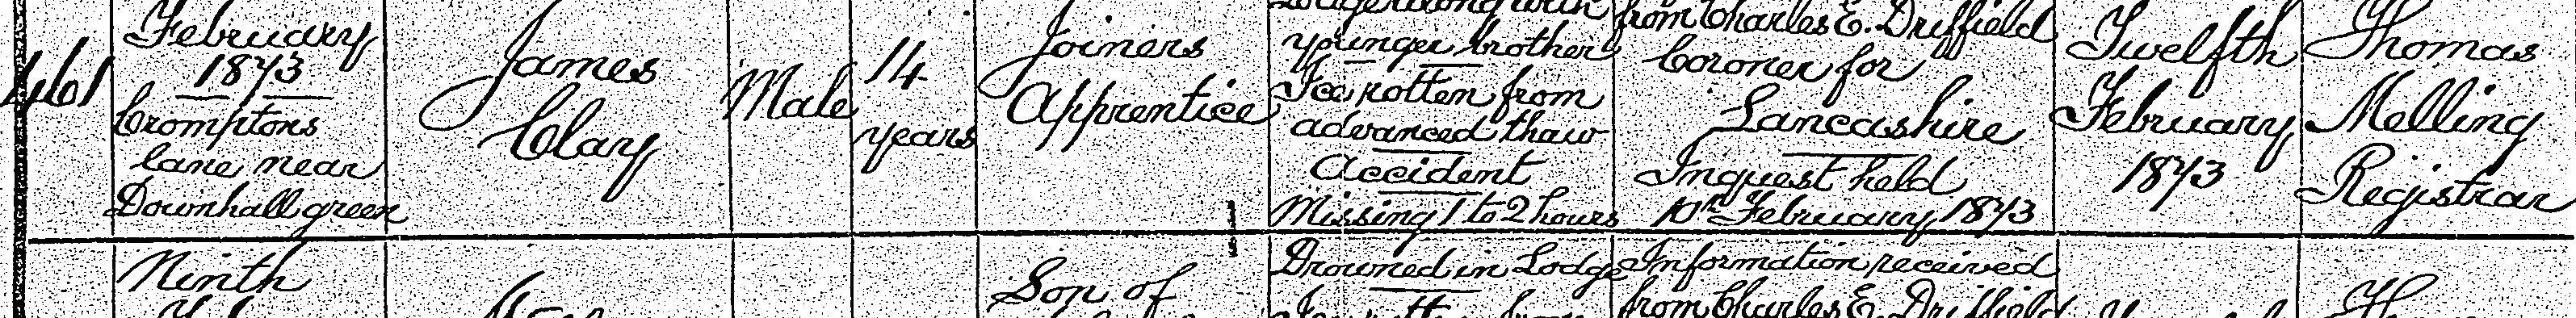 461
February
1873
Cromptons
lane near
Downhall green
James
Clary
Male
14
years
Joiners
Apprentice
Lodge along with
younger brother
Ice rotten from
advanced thaw
Accident
Missing 1 to 2 hours
from Charles E. Driffield
Coroner for
Lancashire
Inquest held
10th February 1873
Twelfth
February
1873
Thomas
Melling
Registrar
Ninth
Son of
Drowned in Lodge
Ice rotten from
Information received
from Charles E. Driffield